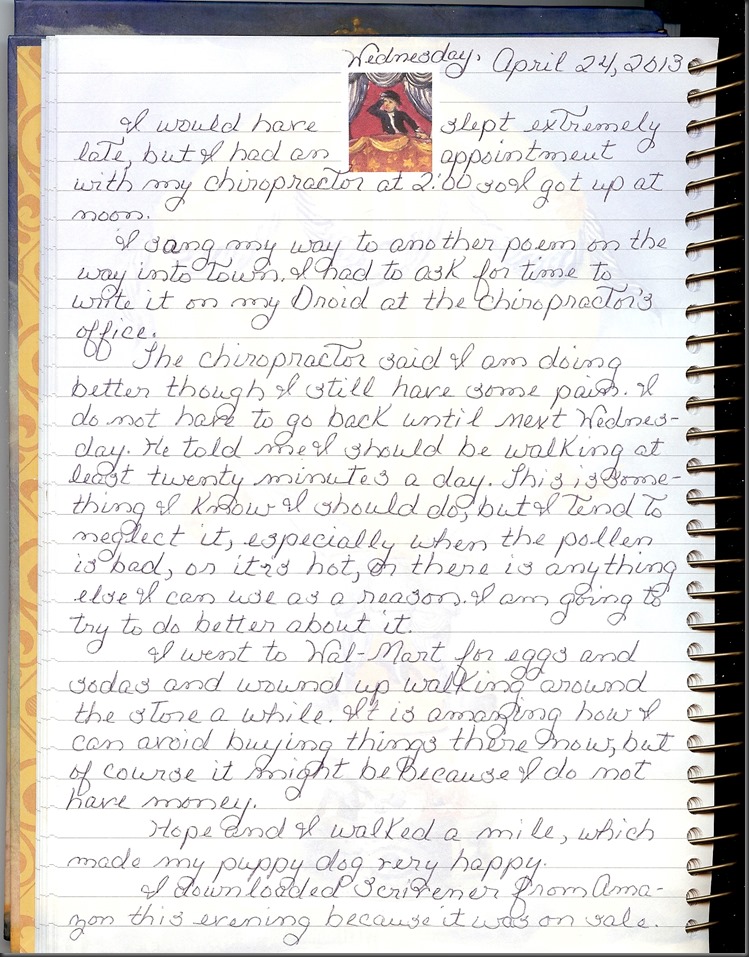 Wednesday, April 24, 2013
I would have slept extremely
late, but I had an appointment
with my chiropractor at 2:00 so I got up at
noon.
I sang my way to another poem on the
way into town. I had to ask for time to
write it on my Droid at the chiropractor's
office.
The chiropractor said I am doing
better though I still have some pain. I
do not have to go back until next Wednes-
day. He told me I should be walking at
least twenty minutes a day. This is some-
thing I know I should do, but I tend to
neglect it, especially when the pollen
is bad, or it is hot, or there is anything
else I can use as a reason. I am going to
try to do better about it.
I went to Wal-Mart for eggs and
sodas and wound up walking around
the store a while. It is amazing how I
can avoid buying things there now, but
of course it might be because I do not
have money.
Hope and I walked a mile, which
made my puppy dog very happy.
I downloaded Scrivener from Ama-
zon this evening because it was on sale.